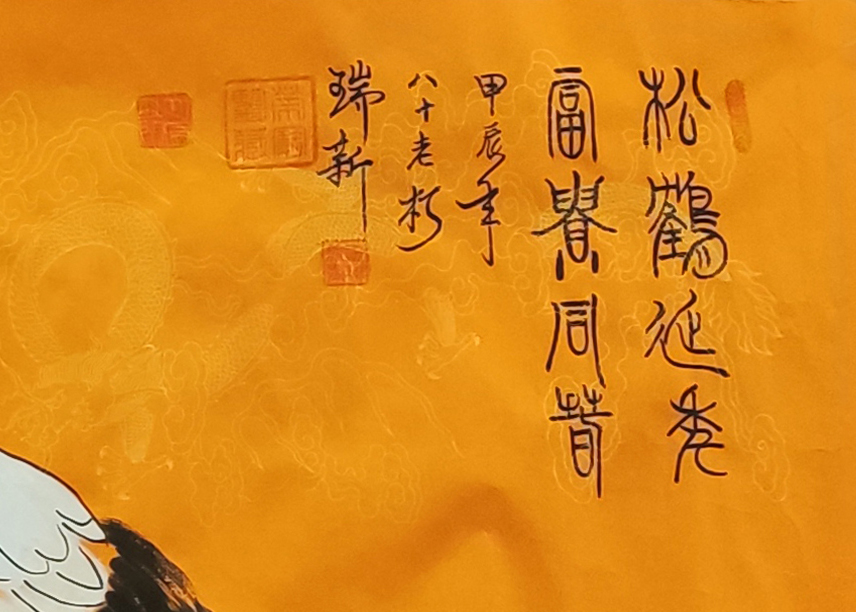 松鶴延年
富貴同春
甲辰年
八十老朽
瑞新